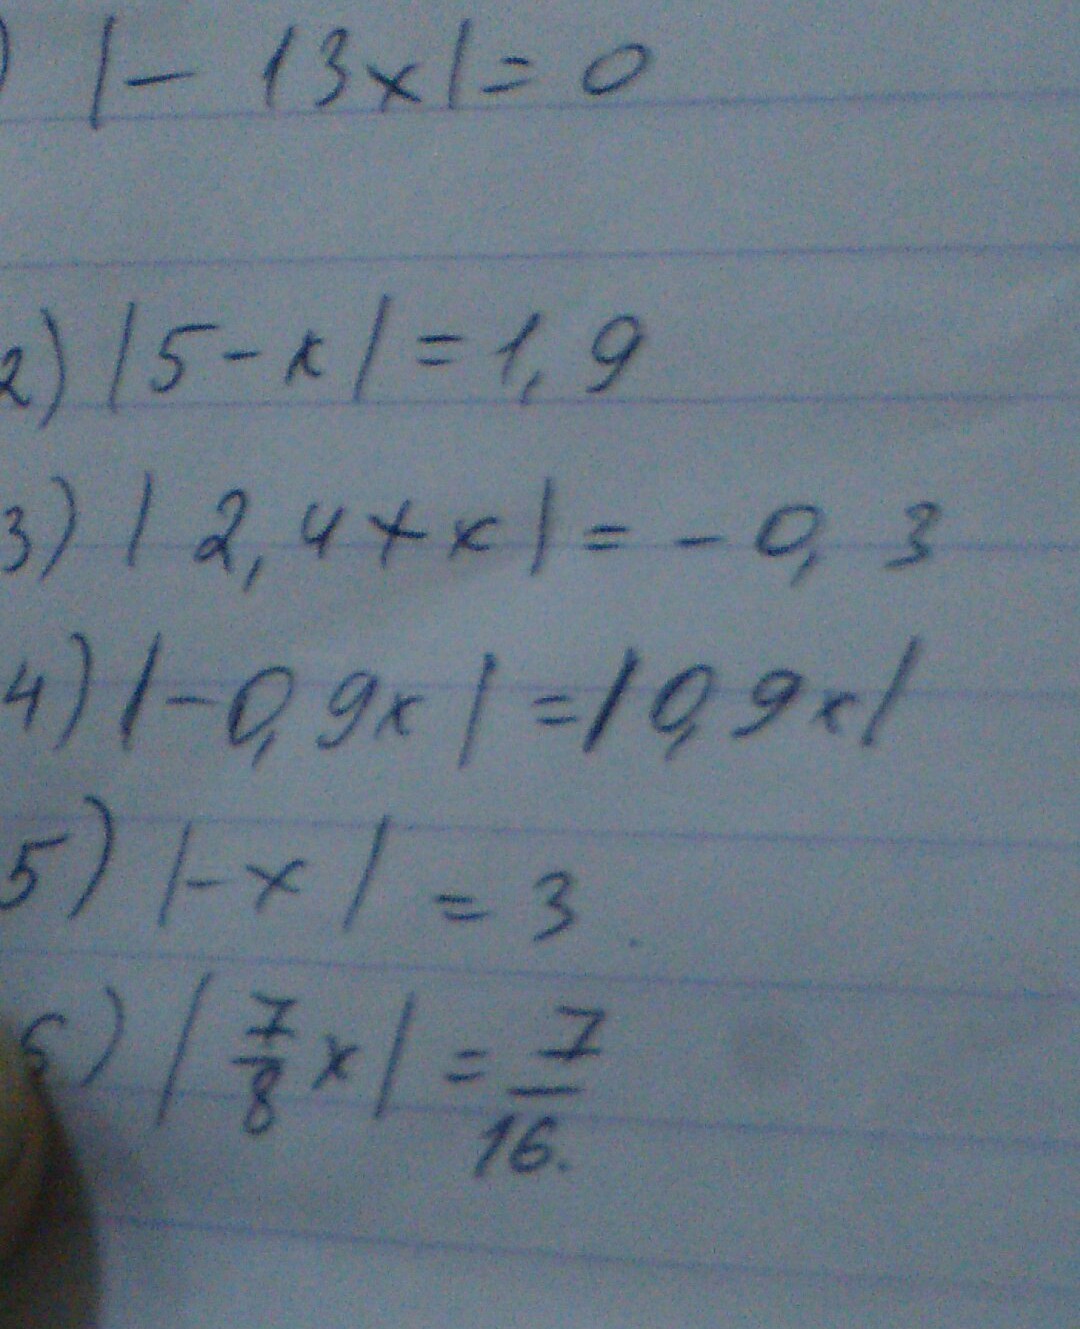 ) |- 13x| = 0
2) |5-x| = 1,9
3) | 2,4+x| = - 0,3
4) |-0,9x| = |0,9x|
5) |-x| = 3.
6) |7/8 x| = 7/16.